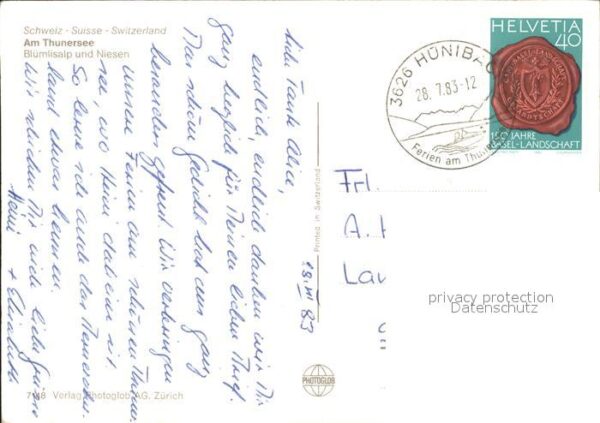 Schweiz - Suisse - Switzerland
Am Thunersee
Blümlisalp und Niesen
Liebe Tante Alice,
endlich, endlich danken wir Dir
ganz herzlich für Deinen lieben Brief.
Das schöne Gedicht hat uns ganz
besonders gefreut. Wir verbringen
unsere Ferien am schönen Thuner-
see, wo Heini daheim ist.
So lerne ich auch das Berner
land etwas kennen.
Wir schicken Dir viele liebe Grüsse
Heini + Elisabeth
7148 Verlag Photoglob AG, Zürich
Printed in Switzerland
PHOTOGLOB
18. VII 83
3626 HÜNIBACH
28.7.83-12
Ferien am Thuner
HELVETIA
40
150 JAHRE
BASEL-LANDSCHAFT
Frl.
A.
Lau
privacy protection
Datenschutz